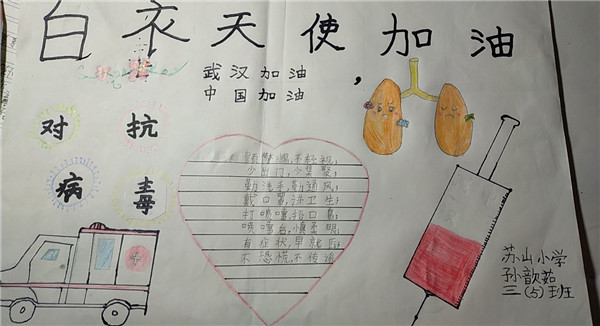 白衣天使加油
武汉加油,
中国加油
对抗
病毒
少出门,少集聚;
勤洗手,勤通风;
戴口罩,讲卫生;
打喷嚏,捂口鼻;
喷嚏后,慎揉眼;
有症状,早就医;
不恐慌,不传谣
苏山小学
孙歆茹
三(5)班